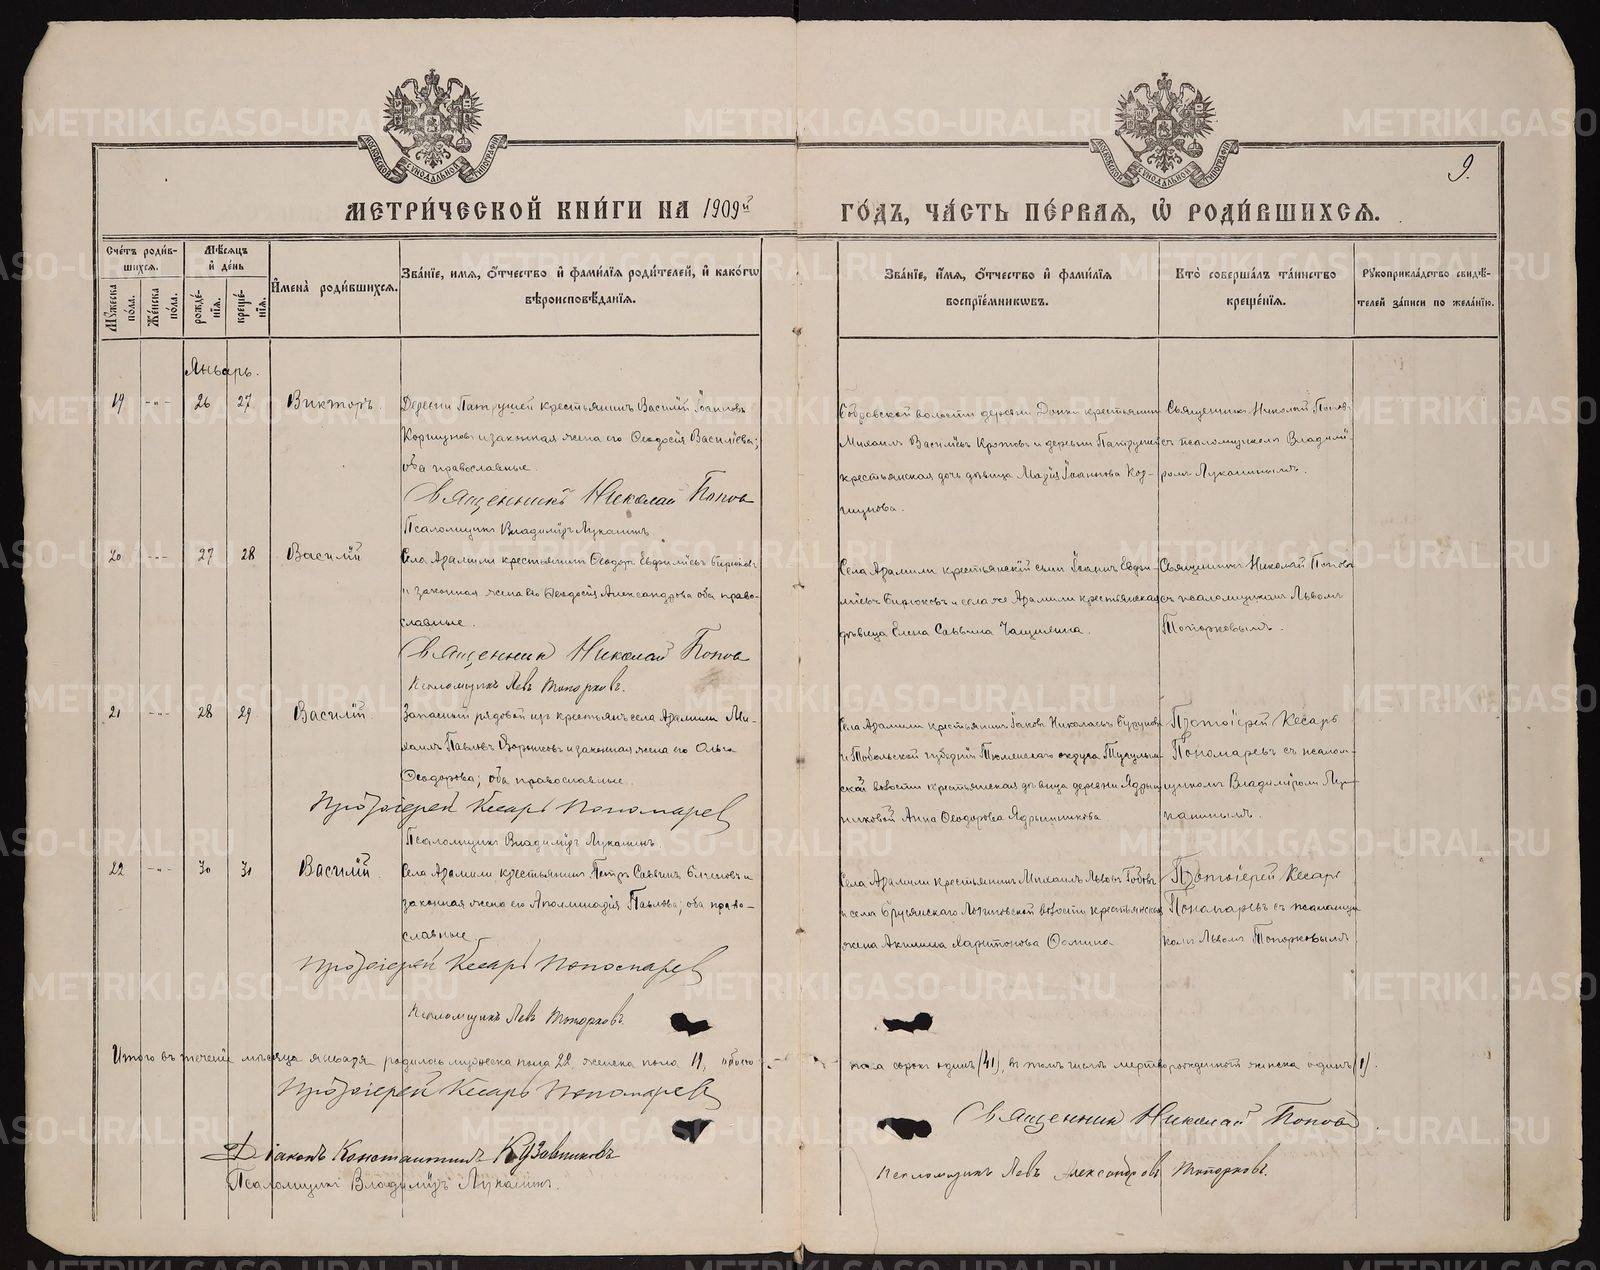 МОСКОВСКОЙ СѴНОДАЛЬНОЙ ТИПОГРАФІИ
МОСКОВСКОЙ СѴНОДАЛЬНОЙ ТИПОГРАФІИ
9.
МЕТРИ́ЧЕСКОЙ КНИ́ГИ НА 1909й
ГО́ДЪ, ЧА́СТЬ ПЕ́РВАЯ, Ѡ РОДИ́ВШИХСЯ.
Сче́тъ роди́в-
шихся.
Мѣ́сяцъ
и҆ де́нь
Мꙋ́жеска по́ла.
Же́нска по́ла.
рожде́-
нїя.
креще́-
нїя.
И҆мена̀ роди́вшихся.
Зва́нїе, и҆́мя, ѻ҆́тчество и҆ фами́лїя роди́телей, и҆ како́гѡ
вѣроисповѣ́данїя.
Зва́нїе, и҆́мя, ѻ҆́тчество и҆ фами́лїя
воспрїе́мникѡвъ.
Кто̀ соверша́лъ та́инство
креще́нїя.
Рꙋкоприкла́дство свидѣ́-
телей за́писи по жела́нїю.
Январь.
19 -"- 26 27 Викторъ.
Деревни Патрушей крестьянинъ Василій Іоанновъ
Коршуновъ и законная жена его Ѳеодосія Васильева;
оба православные.
Священникъ Николай Попов
Псаломщикъ Владиміръ Лукашинъ.
волости деревни крестьянин
Михаилъ Васильевъ Кротовъ и деревни Патрушей
крестьянская дочь дѣвица Марія Іоаннова Кор-
шунова.
Священникъ Николай Попов
съ псаломщикомъ Владимі-
ромъ Лукашинымъ.
20 -"- 27 28 Василій
Села Арамили крестьянинъ Ѳеодоръ Евфиміевъ Бирюковъ
и законная жена его Ѳеодосія Александрова оба право-
славные.
Священник Николай Попов
Псаломщикъ Левъ Топорковъ.
Села Арамили крестьянскій сынъ Іоаннъ Евфи-
міевъ Бирюковъ и села же Арамили крестьянская
дѣвица Елена Саввина Чащихина.
Священникъ Николай Попов
съ псаломщикомъ Львомъ
Топорковымъ.
21 -"- 28 29 Василій
Запасный рядовой изъ крестьянъ села Арамили Ми-
хаилъ Павловъ и законная жена его Ольга
Ѳеодорова; оба православные.
Протоіерей Кесарь Пономарев
Псаломщикъ Владиміръ Лукашинъ.
Села Арамили крестьянинъ Іаковъ Николаевъ
и Тобольской губерніи Тюменскаго округа
ской волости крестьянская дѣвица деревни
Анна Ѳеодорова Ядрышникова.
Протоіерей Кесарь
Пономаревъ съ псалом-
щикомъ Владиміромъ Лу-
кашинымъ.
22 -"- 30 31 Василій.
Села Арамили крестьянинъ Петръ Саввинъ и
законная жена его Аполлинарія Павлова; оба право-
славные.
Протоіерей Кесарь Пономарев
Псаломщикъ Левъ Топорковъ.
Села Арамили крестьянинъ Михаилъ Львовъ
и села Бруснянскаго Логиновской волости крестьянская
жена Акилина Харитонова
Протоіерей Кесарь
Пономаревъ съ псаломщи-
комъ Львомъ Топорковымъ
Итого въ теченіе мѣсяца января родилось мужеска пола 22 женска пола 19, обоего
пола сорокъ одинъ (41), въ томъ числѣ мертворожденный женска одинъ (1).
Протоіерей Кесарь Пономарев
Священник Николай Попов
Діаконъ Константинъ Кузовниковъ
Псаломщикъ Владиміръ Лукашинъ.
Псаломщикъ Левъ Александровъ Топорковъ.
METRIKI.GASO-URAL.RU